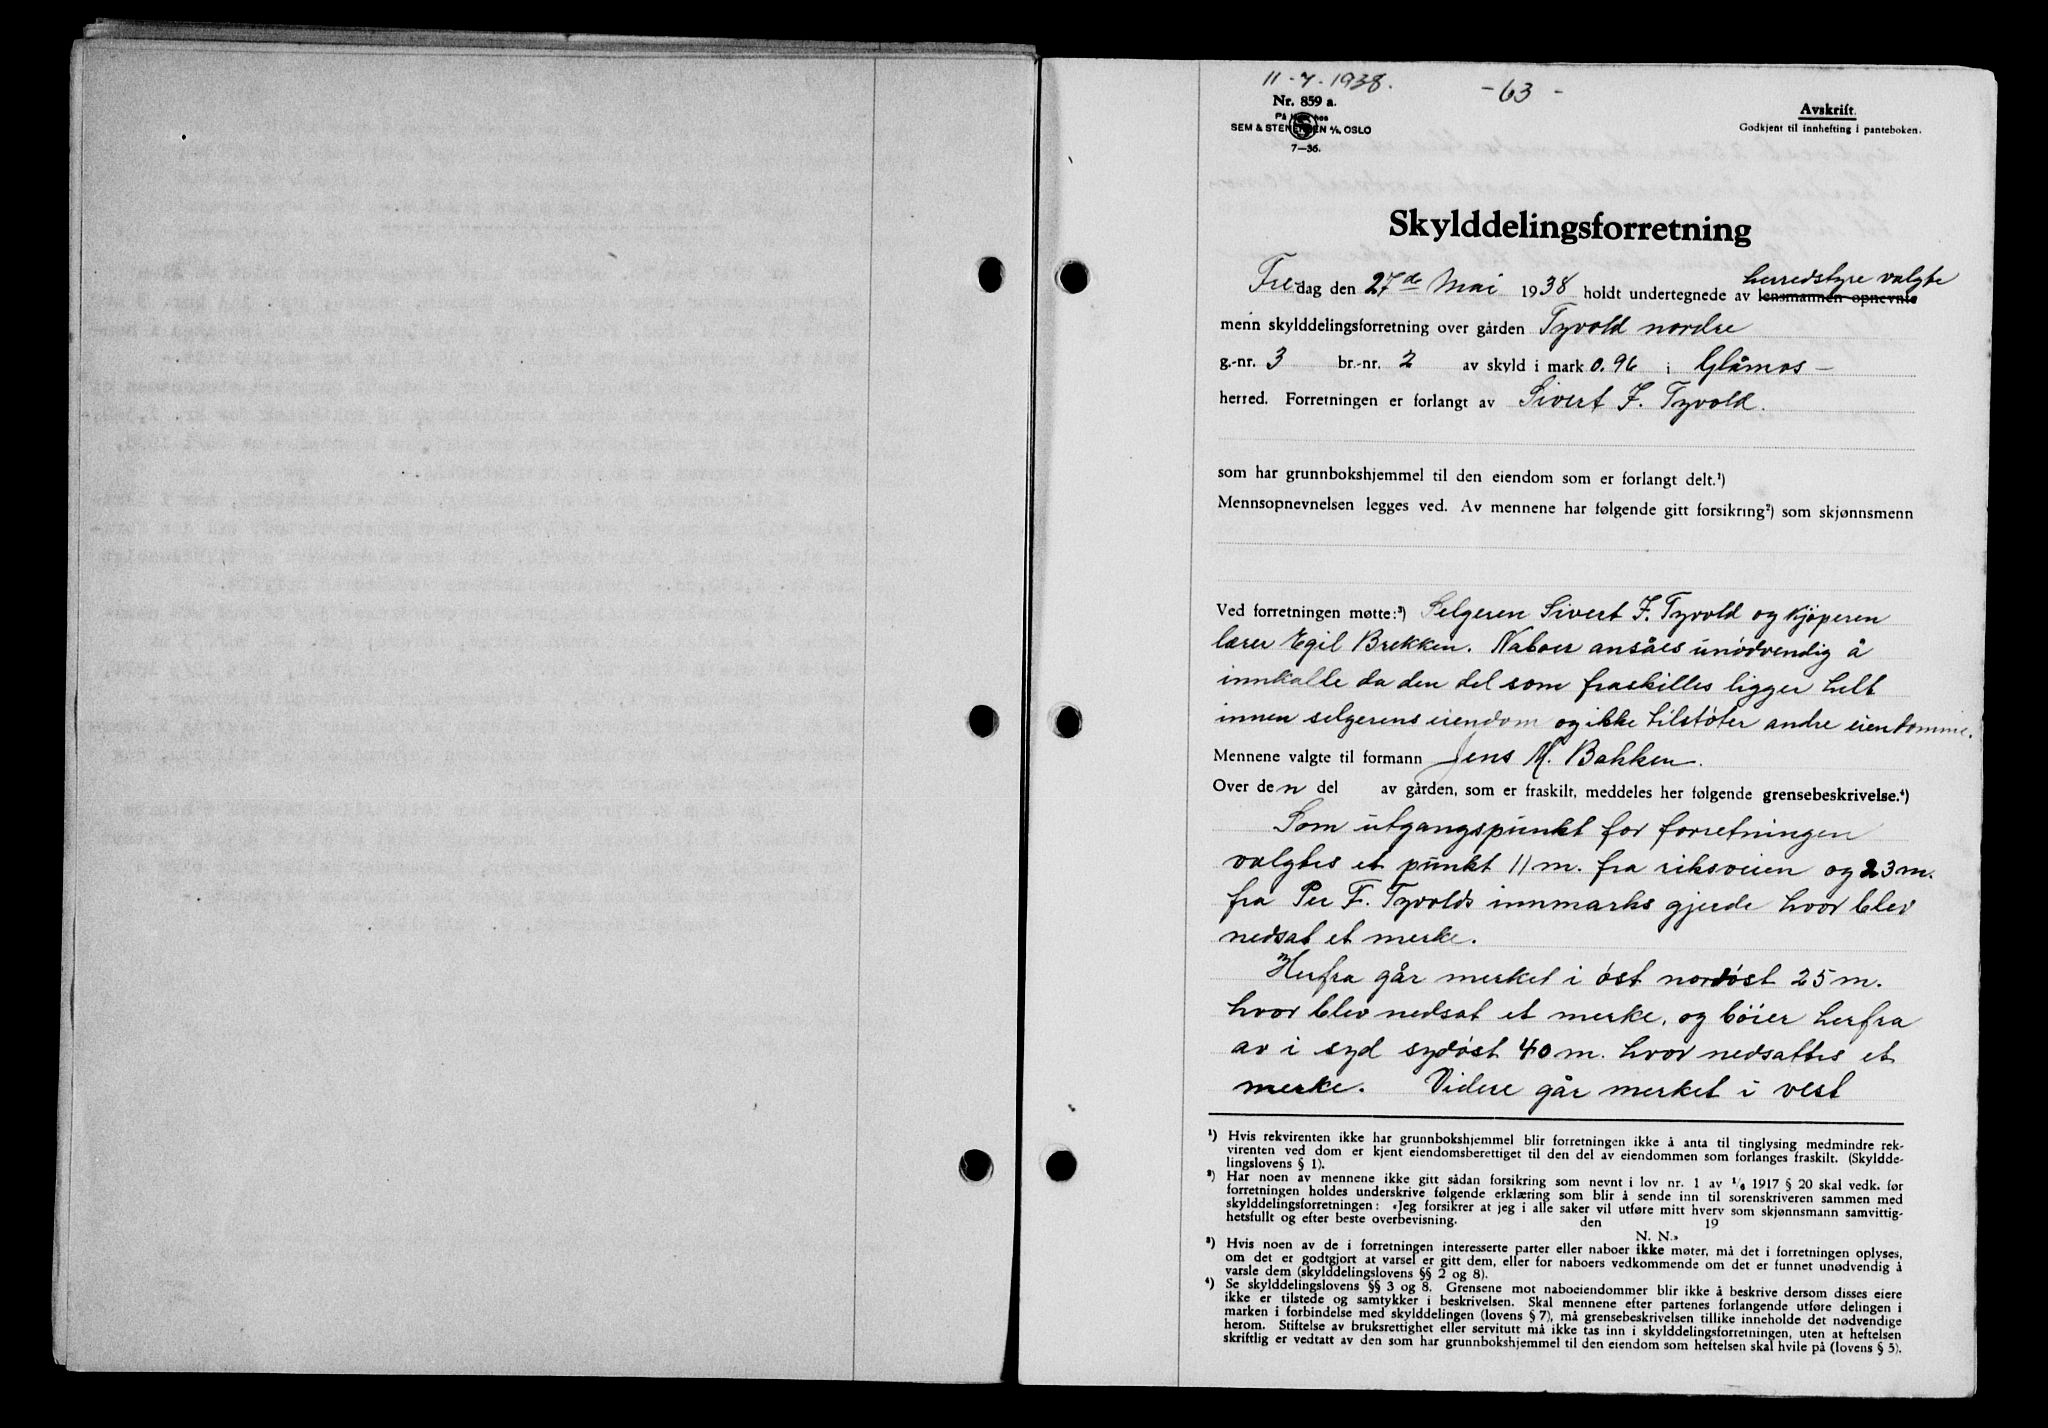 11-7-1938.
-63-
Nr. 859 a.
SEM & STENERSEN A/S, OSLO
7—36.
Avskrift.
Godkjent til innhefting i panteboken.
Skylddelingsforretning
Fredag den 27de Mai 1938 holdt undertegnede av lensmannen opnevnte herredstyre valgte
menn skylddelingsforretning over gården Tyvold nordre
g.-nr. 3 br.-nr. 2 av skyld i mark 0.96 i Glåmos -
herred. Forretningen er forlangt av Sivert J. Tyvold.
som har grunnbokshjemmel til den eiendom som er forlangt delt.¹)
Mennsopnevnelsen legges ved. Av mennene har følgende gitt forsikring²) som skjønnsmenn
Ved forretningen møtte:³) Selgeren Sivert J. Tyvold og kjøperen
lærer Egil Brekken. Naboer ansåes unødvendig å
innkalle da den del som fraskilles ligger helt
innen selgerens eiendom og ikke tilstøter andre eiendomme.
Mennene valgte til formann Jens M. Bakken.
Over den del av gården, som er fraskilt, meddeles her følgende grensebeskrivelse.⁴)
Som utgangspunkt for forretningen
valgtes et punkt 11 m. fra riksveien og 23 m.
fra Per F. Tyvolds innmarks gjerde hvor blev
nedsat et merke.
Herfra går merket i øst nordøst 25 m.
hvor blev nedsat et merke, og bøier herfra
av i syd sydøst 40 m. hvor nedsattes et
merke. Videre går merket i vest
¹) Hvis rekvirenten ikke har grunnbokshjemmel blir forretningen ikke å anta til tinglysing medmindre rek-
virenten ved dom er kjent eiendomsberettiget til den del av eiendommen som forlanges fraskilt. (Skyldde-
lingslovens § 1).
²) Har noen av mennene ikke gitt sådan forsikring som nevnt i lov nr. 1 av 1/6 1917 § 20 skal vedk. før
forretningen holdes underskrive følgende erklæring som blir å sende inn til sorenskriveren sammen med
skylddelingsforretningen: «Jeg forsikrer at jeg i alle saker vil utføre mitt hverv som skjønnsmann samvittig-
hetsfullt og efter beste overbevisning. den 19
N. N.»
³) Hvis noen av de i forretningen interesserte parter eller naboer ikke møter, må det i forretningen oplyses,
om det er godtgjort at varsel er gitt dem, eller for naboers vedkommende om det er funnet unødvendig å
varsle dem (skylddelingslovens §§ 2 og 8).
⁴) Se skylddelingslovens §§ 3 og 8. Grensene mot naboeiendommer blir ikke å beskrive dersom disses eiere
ikke er tilstede og samtykker i beskrivelsen. Skal mennene efter partenes forlangende utføre delingen i
marken i forbindelse med skylddelingen (lovens § 7), må grensebeskrivelsen tillike inneholde det nødvendige
herom. Stiftelse av bruksrettighet eller servitutt må ikke tas inn i skylddelingsforretningen, uten at heftelsen
skriftlig er vedtatt av den som har grunnbokshjemmel til den eiendom som heftelsen skal hvile på (lovens § 5).